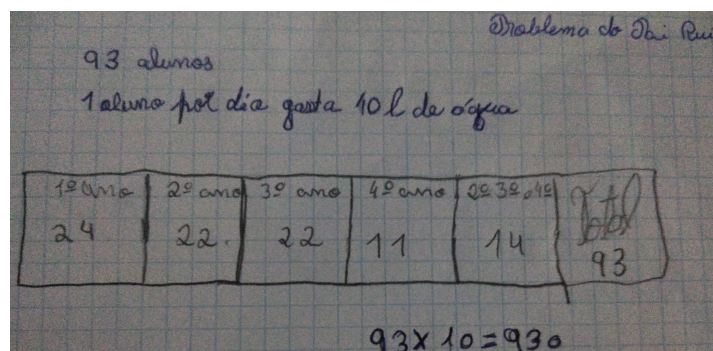 Problema do Pai Rui
93 alunos
1 aluno por dia gasta 10 l de água
1º ano 2º ano 3º ano 4º ano 2º 3º 4º Total
24 22 22 11 14 93
93 x 10 = 930